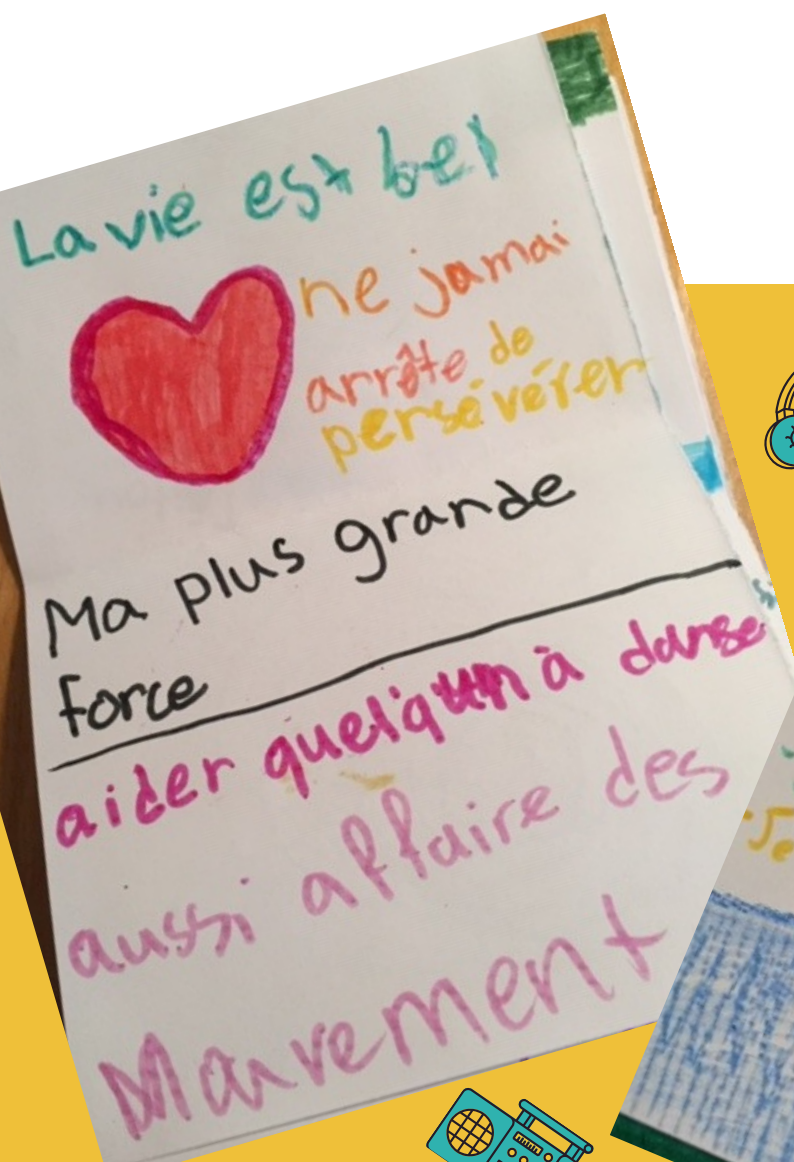 La vie est bel
ne jamai
arrête de
persévérer
Ma plus grande
force
aider quelqun à danse
aussi affaire des
Mouvement